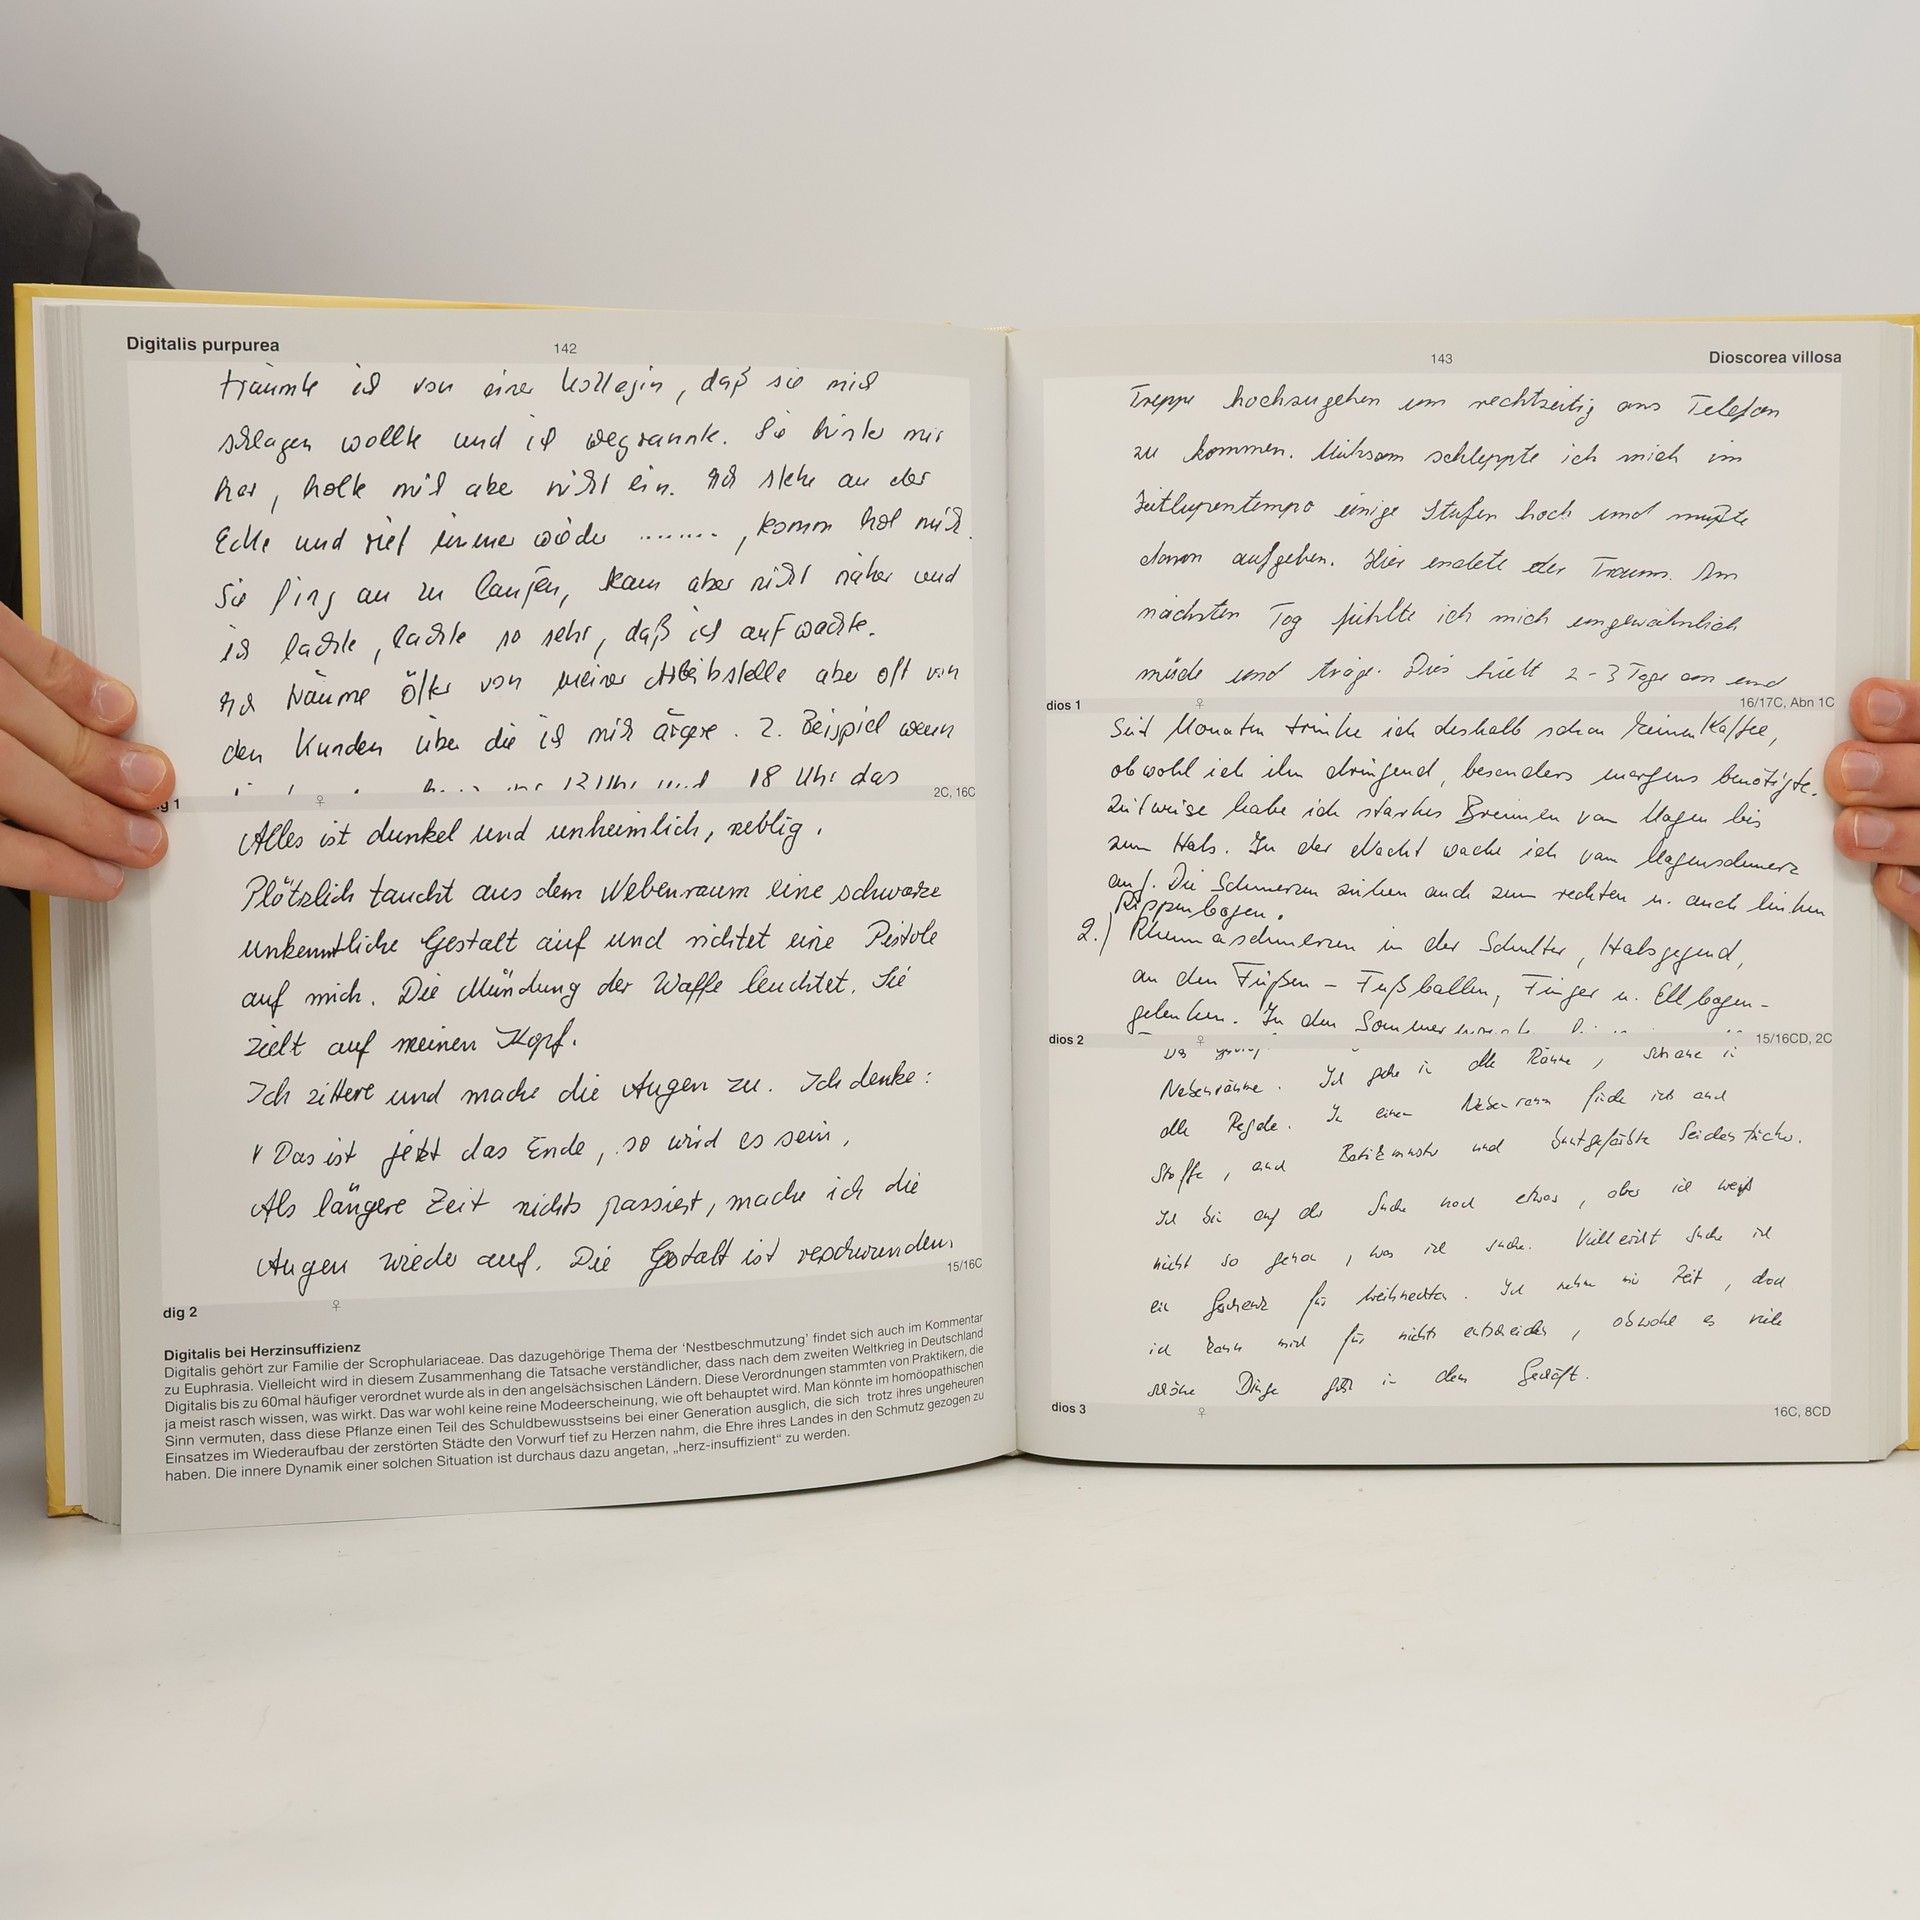 Digitalis purpurea
142
träumte ich von einer Kollegin, daß sie mich
schlagen wollte und ich wegrannte. Sie hinter mir
her, holte mich aber nicht ein. Ich stehe an der
Ecke und rief immer wieder ........, komm hol mich.
Sie fing an zu laufen, kam aber nicht näher und
ich lachte, lachte so sehr, daß ich aufwachte.
Ich träume öfter von meiner Arbeitsstelle aber oft von
den Kunden über die ich mich ärgere. 2. Beispiel wenn
12 Uhr und 18 Uhr das
g 1
♀
2C, 16C
Alles ist dunkel und unheimlich, neblig.
Plötzlich taucht aus dem Nebenraum eine schwarze
unkenntliche Gestalt auf und richtet eine Pistole
auf mich. Die Mündung der Waffe leuchtet. Sie
zielt auf meinen Kopf.
Ich zittere und mache die Augen zu. Ich denke:
"Das ist jetzt das Ende, so wird es sein,
Als längere Zeit nichts passiert, mache ich die
Augen wieder auf. Die Gestalt ist verschwunden.
15/16C
dig 2
♀
Digitalis bei Herzinsuffizienz
Digitalis gehört zur Familie der Scrophulariaceae. Das dazugehörige Thema der 'Nestbeschmutzung' findet sich auch im Kommentar
zu Euphrasia. Vielleicht wird in diesem Zusammenhang die Tatsache verständlicher, dass nach dem zweiten Weltkrieg in Deutschland
Digitalis bis zu 60mal häufiger verordnet wurde als in den angelsächsischen Ländern. Diese Verordnungen stammten von Praktikern, die
ja meist rasch wissen, was wirkt. Das war wohl keine reine Modeerscheinung, wie oft behauptet wird. Man könnte im homöopathischen
Sinn vermuten, dass diese Pflanze einen Teil des Schuldbewusstseins bei einer Generation ausglich, die sich trotz ihres ungeheuren
Einsatzes im Wiederaufbau der zerstörten Städte den Vorwurf tief zu Herzen nahm, die Ehre ihres Landes in den Schmutz gezogen zu
haben. Die innere Dynamik einer solchen Situation ist durchaus dazu angetan, „herz-insuffizient" zu werden.
143
Dioscorea villosa
Treppe hochzugehen um rechtzeitig ans Telefon
zu kommen. Mühsam schleppte ich mich im
Zeitlupentempo einige Stufen hoch und mußte
dann aufgeben. Hier endete der Traum. Am
nächsten Tag fühlte ich mich ungewöhnlich
müde und träge. Dies hielt 2-3 Tage an und
dios 1
♀
16/17C, Abn 1C
Seit Monaten trinke ich deshalb schon keinen Kaffee,
obwohl ich ihn dringend, besonders morgens benötigte.
Zeitweise habe ich starkes Brennen vom Magen bis
zum Hals. In der Nacht wache ich vom Magenschmerz
auf. Die Schmerzen ziehen auch zum rechten u. auch linken
Rippenbogen.
2.) Rheumaschmerzen in der Schulter, Halsgegend,
an den Füßen – Fußballen, Finger u. Ellbogen-
gelenken. In den Sommermonaten
dios 2
♀
15/16CD, 2C
Nebenräume. Ich gehe in alle Räume, schaue in
alle Regale. In einem Nebenraum finde ich auch
Stoffe, auch Batikmuster und buntgefärbte Seidentücher.
Ich bin auf der Suche nach etwas, aber ich weiß
nicht so genau, was ich suche. Vielleicht suche ich
ein Geschenk für Weihnachten. Ich nehme mir Zeit, doch
ich kann mich für nichts entscheiden, obwohl es viele
schöne Dinge gibt in dem Geschäft.
dios 3
♀
16C, 8CD